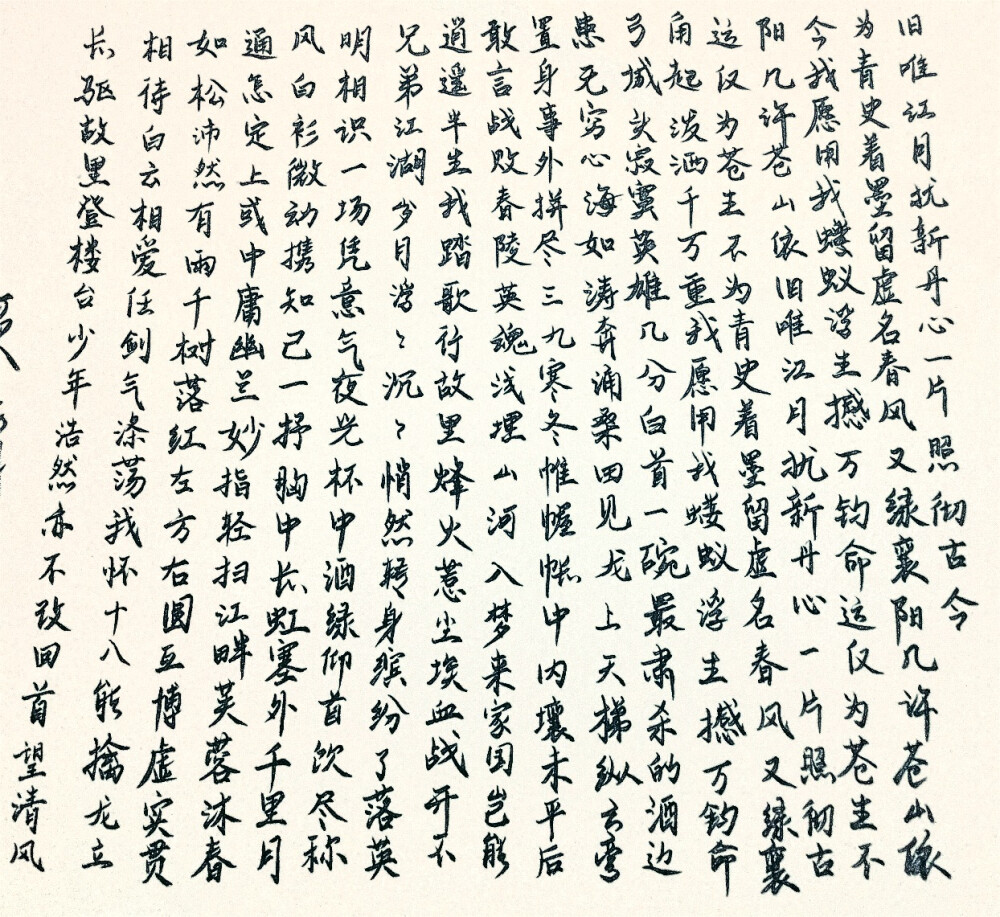 长驱故里登楼台少年浩然亦不改回首望清风
相待白云相爱任剑气涤荡我怀十八能擒龙立
如松沛然有雨千树落红左方右圆互博虚实贯
通怎定上或中庸幽兰妙指轻扫江畔芙蓉沐春
风白衫微动携知己一抒胸中长虹塞外千里月
明相识一场凭意气夜光杯中酒绿仰首饮尽称
兄弟江湖岁月滔〻沉〻悄然转身缤纷了落英
逍遥半生我踏歌行故里烽火惹尘埃血战开不
敢言战败春陵英魂浅埋山河入梦来家国岂能
置身事外拼尽三九寒冬帷幄帐中内壤未平后
患无穷心海如涛奔涌桑田见龙上天梯纵云弯
弓城头寂寞英雄几分白首一碗最肃杀的酒边
角起泼洒千万重我愿用我蝼蚁浮生撼万钧命
运仅为苍生不为青史着墨留虚名春风又绿襄
阳几许苍山依旧唯江月扰新丹心一片照彻古
今我愿用我蝼蚁浮生撼万钧命运仅为苍生不
为青史着墨留虚名春风又绿襄阳几许苍山依
旧唯江月扰新丹心一片照彻古今